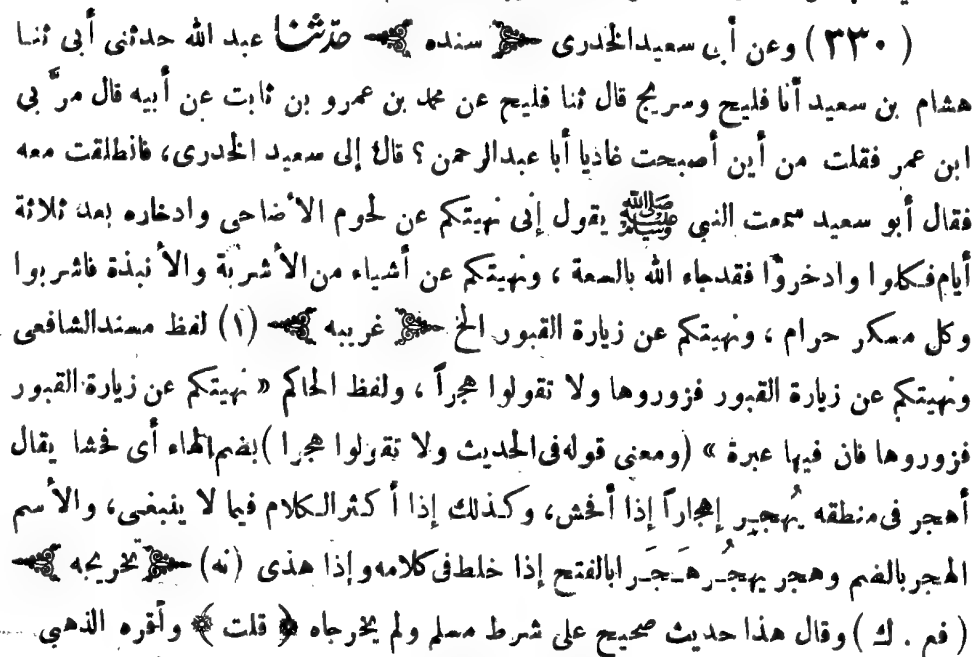 ( ٣٣٠ ) وعن أبى سعيد الخدرى ﴿ سنده ﴾ حدثنا عبد الله حدثنى أبى ثنا
هشام بن سعيد أنا فليح وسريج قال ثنا فليح عن محمد بن عمرو بن ثابت عن أبيه قال مرَّ بي
ابن عمر فقلت من أين أصبحت غاديا أبا عبد الرحمن ؟ قال إلى سعيد الخدرى، فانطلقت معه
فقال أبو سعيد سمعت النبي ﷺ يقول إنى نهيتكم عن لحوم الأضاحى وادخاره بعد ثلاثة
أيام فكلوا وادخروا فقد جاء الله بالسعة ، ونهيتكم عن أشياء من الأشربة والأنبذة فاشربوا
وكل مسكر حرام ، ونهيتكم عن زيارة القبور الخ ﴿ غريبه ﴾ (١) لفظ مسند الشافعى
ونهيتكم عن زيارة القبور فزوروها ولا تقولوا هجراً ، ولفظ الحاكم « نهيتكم عن زيارة القبور
فزوروها فان فيها عبرة » (ومعنى قوله فى الحديث ولا تقولوا هجرا ) بضم الهاء أى فحشا يقال
أهجر فى منطقه يُهجِر إهجاراً إذا أفحش، وكذلك إذا أكثر الكلام فيما لا ينبغى، والأسم
الهجر بالضم وهجر يهجُر هَجَرا بالفتح إذا خلط فى كلامه وإذا هذى (نه) ﴿ تخريجه ﴾
( فع . ك ) وقال هذا حديث صحيح على شرط مسلم ولم يخرجاه ﴿ قلت ﴾ وأقره الذهبي